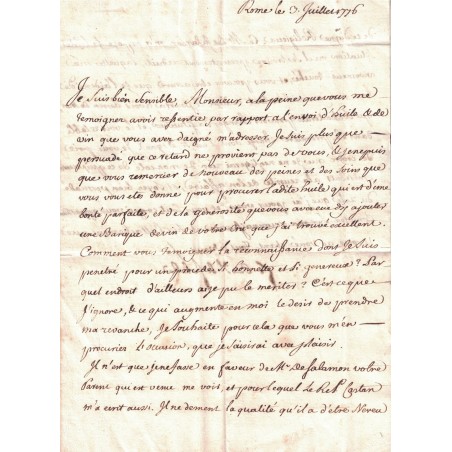 Rome le 3 Juillet 1776
Je suis bien sensible, Monsieur, a la peine que vous me
temoignez avois ressentie par rapport a l'envoi d'huile & de
vin que vous avez daigné m'adresser. Je suis plus que
persuadé que ce retard ne provient pas de vous, & je ne puis
que vous remercier de nouveau des peines et des soins que
vous vous ete donné pour procurer ladite huile qui est d'une
bonté parfaite, et de la generosité que vous avez eue d'y ajouter
une Barique de vin de votre Cru que j'ai trouvé excellent.
Comment vous temoigner la reconnaissance dont Je suis
penetré pour un procedé si honnette et si genereux ? Par
quel endroit d'ailleurs ai-je pu le meriter ? C'est ce que
J'ignore, & ce qui augmente en moi le desir de prendre
ma revanche, Je souhaite pour cela que vous m'en
procuriez l'occasion, que je saisirai avec plaisir.
Il n'est que je ne fasse en faveur de Mr. de Salamon votre
Parent qui est venu me voir, et pour lequel Le Rd. P. Castan
m'a ecrit aussi. Il ne dement la qualité qu'il a d'être Neveu